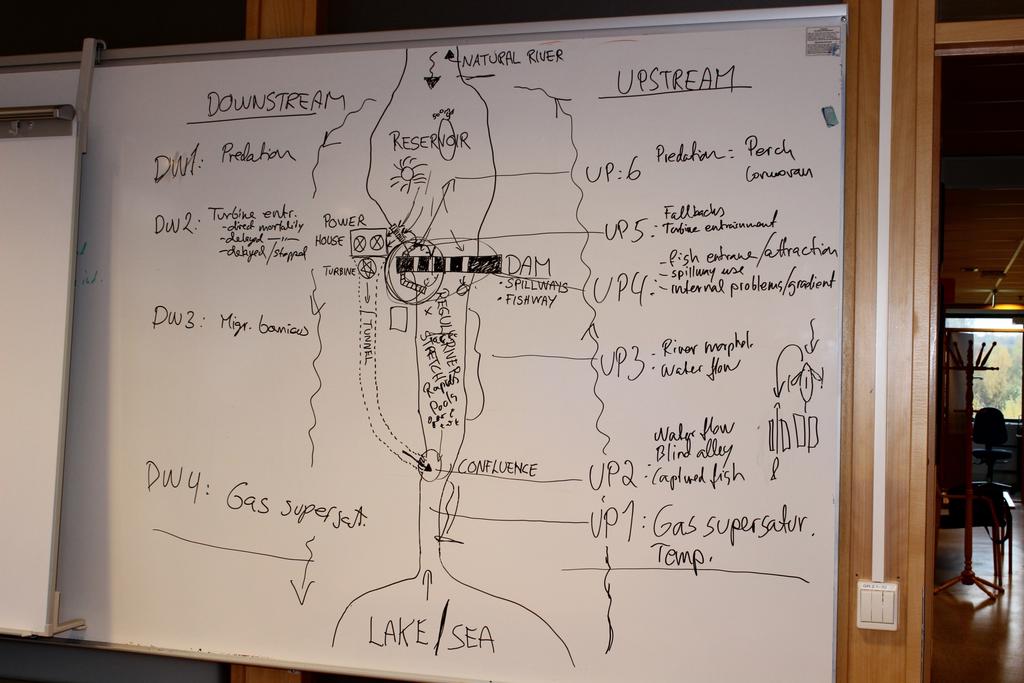 NATURAL RIVER
DOWNSTREAM
UPSTREAM
RESERVOIR
DW1: Predation
UP:6 Predation = Perch
Cormoran
DW2: Turbine entr.
- direct mortality
- delayed -"-
- delayed/stopped
POWER
HOUSE
TURBINE
UP5: Fallbacks
Turbine entrainment
DAM
• SPILLWAYS
• FISHWAY
UP4: - fish entrance/attraction
- spillway use
- internal problems/gradient
DW3: Migr. barriers
TUNNEL
STRETCH
Rapids
Pools
UP3 - River morphol.
- Water flow
CONFLUENCE
UP2: Water flow
Blind alley
Captured fish
DW4: Gas supersat.
UP1: Gas supersatur.
Temp.
LAKE/SEA